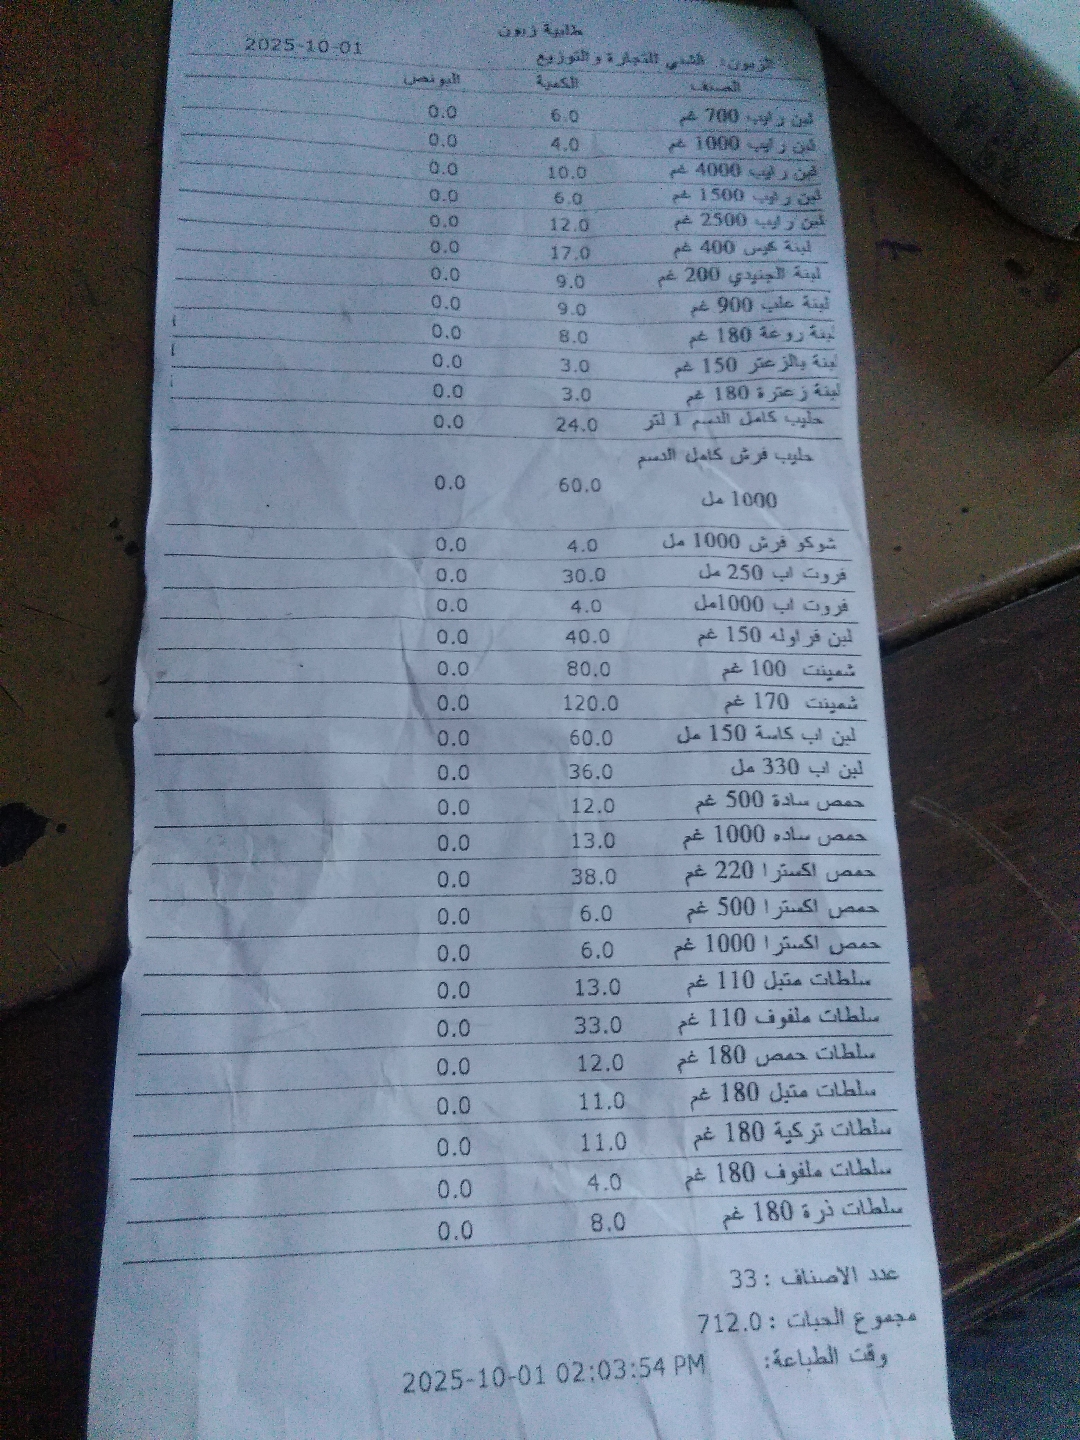 طلبية زبون
الزبون: الشني للتجارة والتوزيع 2025-10-01
الصنف الكمية البونص
لبن رايب 700 غم 6.0 0.0
لبن رايب 1000 غم 4.0 0.0
لبن رايب 4000 غم 10.0 0.0
لبن رايب 1500 غم 6.0 0.0
لبن رايب 2500 غم 12.0 0.0
لبنة كيس 400 غم 17.0 0.0
لبنة الجنيدي 200 غم 9.0 0.0
لبنة علب 900 غم 9.0 0.0
لبنة روعة 180 غم 8.0 0.0
لبنة بالزعتر 150 غم 3.0 0.0
لبنة زعترة 180 غم 3.0 0.0
حليب كامل الدسم 1 لتر 24.0 0.0
حليب فرش كامل الدسم
1000 مل 60.0 0.0
شوكو فرش 1000 مل 4.0 0.0
فروت اب 250 مل 30.0 0.0
فروت اب 1000مل 4.0 0.0
لبن فراوله 150 غم 40.0 0.0
شمينت 100 غم 80.0 0.0
شمينت 170 غم 120.0 0.0
لبن اب كاسة 150 مل 60.0 0.0
لبن اب 330 مل 36.0 0.0
حمص سادة 500 غم 12.0 0.0
حمص ساده 1000 غم 13.0 0.0
حمص اكسترا 220 غم 38.0 0.0
حمص اكسترا 500 غم 6.0 0.0
حمص اكسترا 1000 غم 6.0 0.0
سلطات متبل 110 غم 13.0 0.0
سلطات ملفوف 110 غم 33.0 0.0
سلطات حمص 180 غم 12.0 0.0
سلطات متبل 180 غم 11.0 0.0
سلطات تركية 180 غم 11.0 0.0
سلطات ملفوف 180 غم 4.0 0.0
سلطات ذرة 180 غم 8.0 0.0
عدد الاصناف : 33
مجموع الحبات : 712.0
وقت الطباعة: 2025-10-01 02:03:54 PM